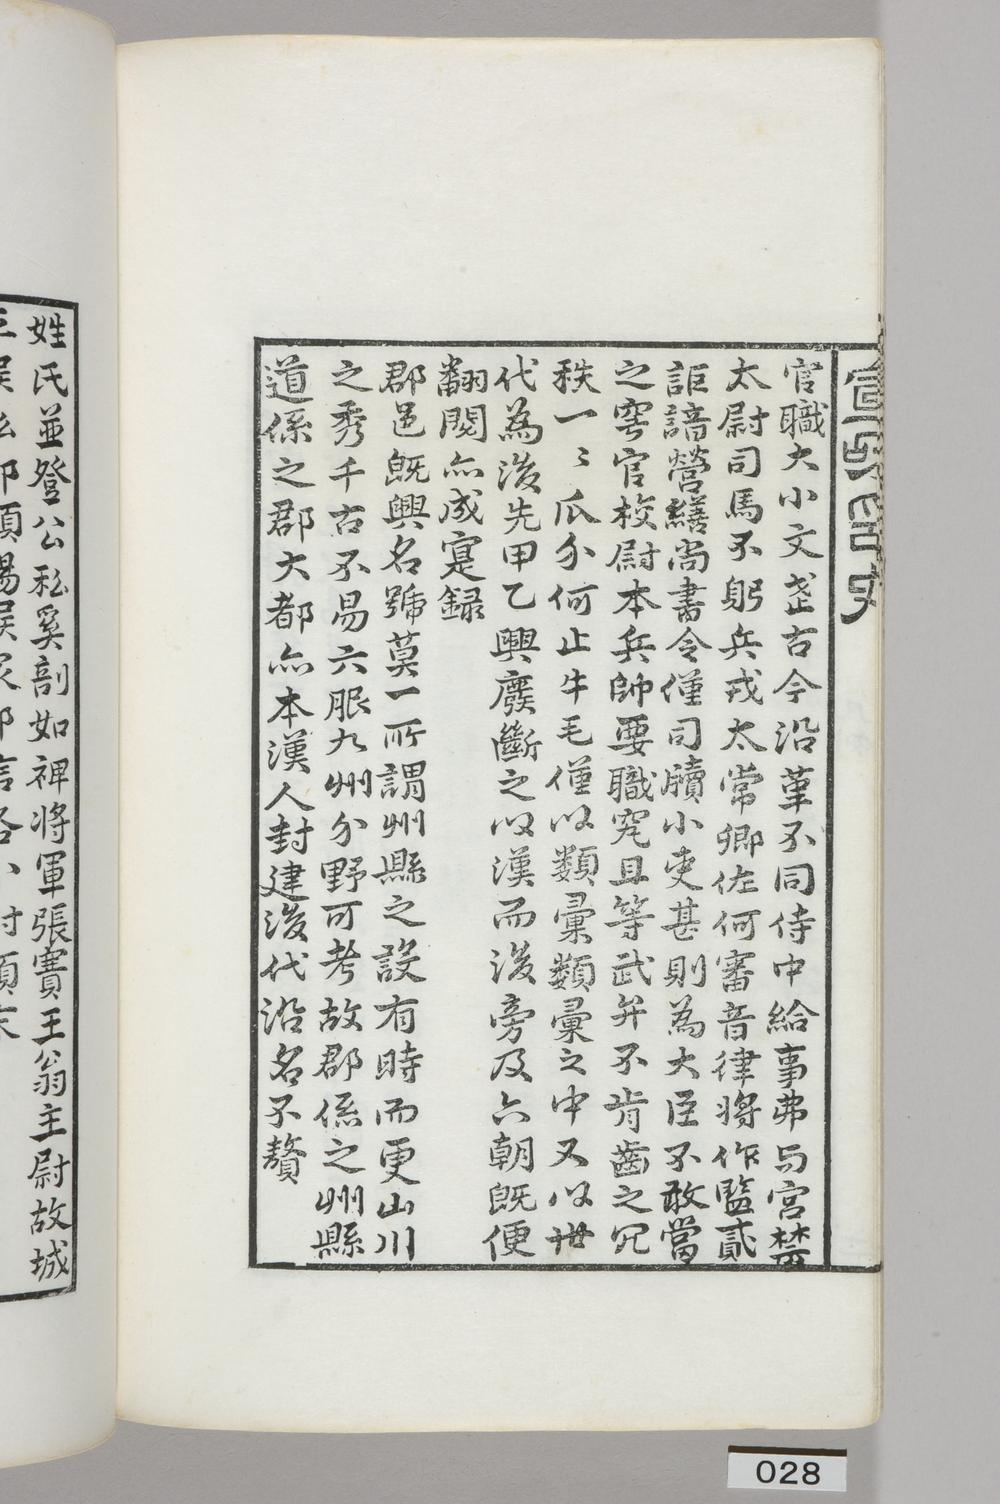 官職大小文武古今沿革不同侍中給事弗与宮禁
太尉司馬不躬兵戎太常卿佐何審音律將作監貳
詎諳營繕尚書令僅司牘小吏甚則為大臣不敢當
之穹官校尉本兵帥要職究且等武弁不肯齒之冗
秩一〻瓜分何止牛毛僅以類彙類彙之中又以世
代為後先甲乙興廢斷之以漢而後旁及六朝既便
翻閱亦成寔録
郡邑既興名號莫一所謂州縣之設有時而更山川
之秀千古不易六服九州分野可考故郡係之州縣
道係之郡大都亦本漢人封建後代沿名不贅
姓氏並登公私奚剖如裨將軍張賽王翁主尉故城
028